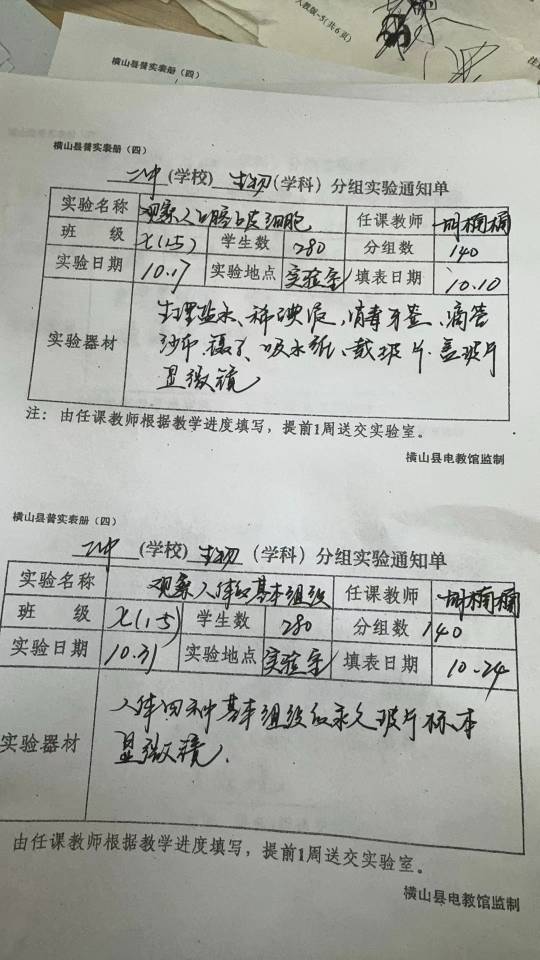 人教版-5(共6页)
横山县普实表册（四）
横山县普实表册（四）
二中(学校) 生物(学科）分组实验通知单
实验名称 观察人口腔上皮细胞 任课教师 胡楠楠
班 级 七(1.5) 学生数 280 分组数 140
实验日期 10.17 实验地点 实验室 填表日期 10.10
实验器材 生理盐水、稀碘液，消毒牙签、滴管
纱布、镊子、吸水纸、载玻片、盖玻片
显微镜
注：由任课教师根据教学进度填写，提前1周送交实验室。
横山县电教馆监制
横山县普实表册（四）
二中 (学校) 生物（学科）分组实验通知单
实验名称 观察人体的基本组织 任课教师 胡楠楠
班 级 七(1-5) 学生数 280 分组数 140
实验日期 10.31 实验地点 实验室 填表日期 10-24
实验器材 人体四种基本组织的永久玻片标本
显微镜.
由任课教师根据教学进度填写，提前1周送交实验室。
横山县电教馆监制